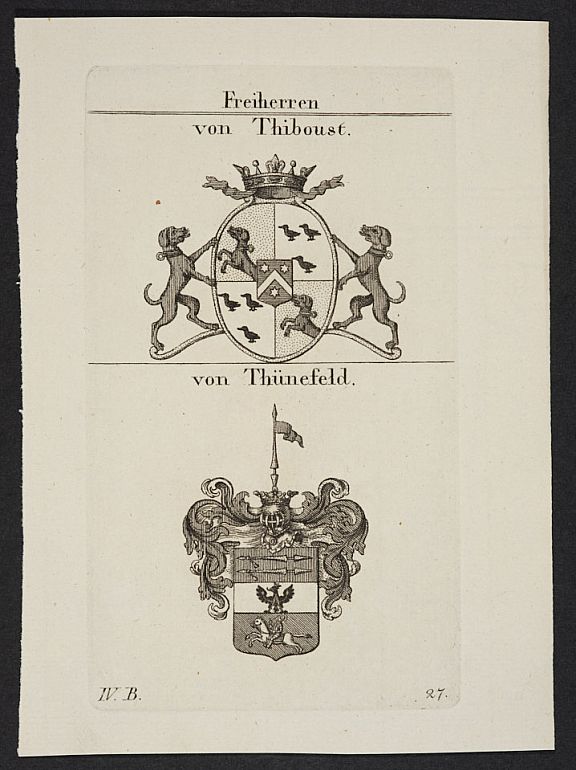 Freiherren
von Thiboust.
von Thünefeld.
IV. B. 27.